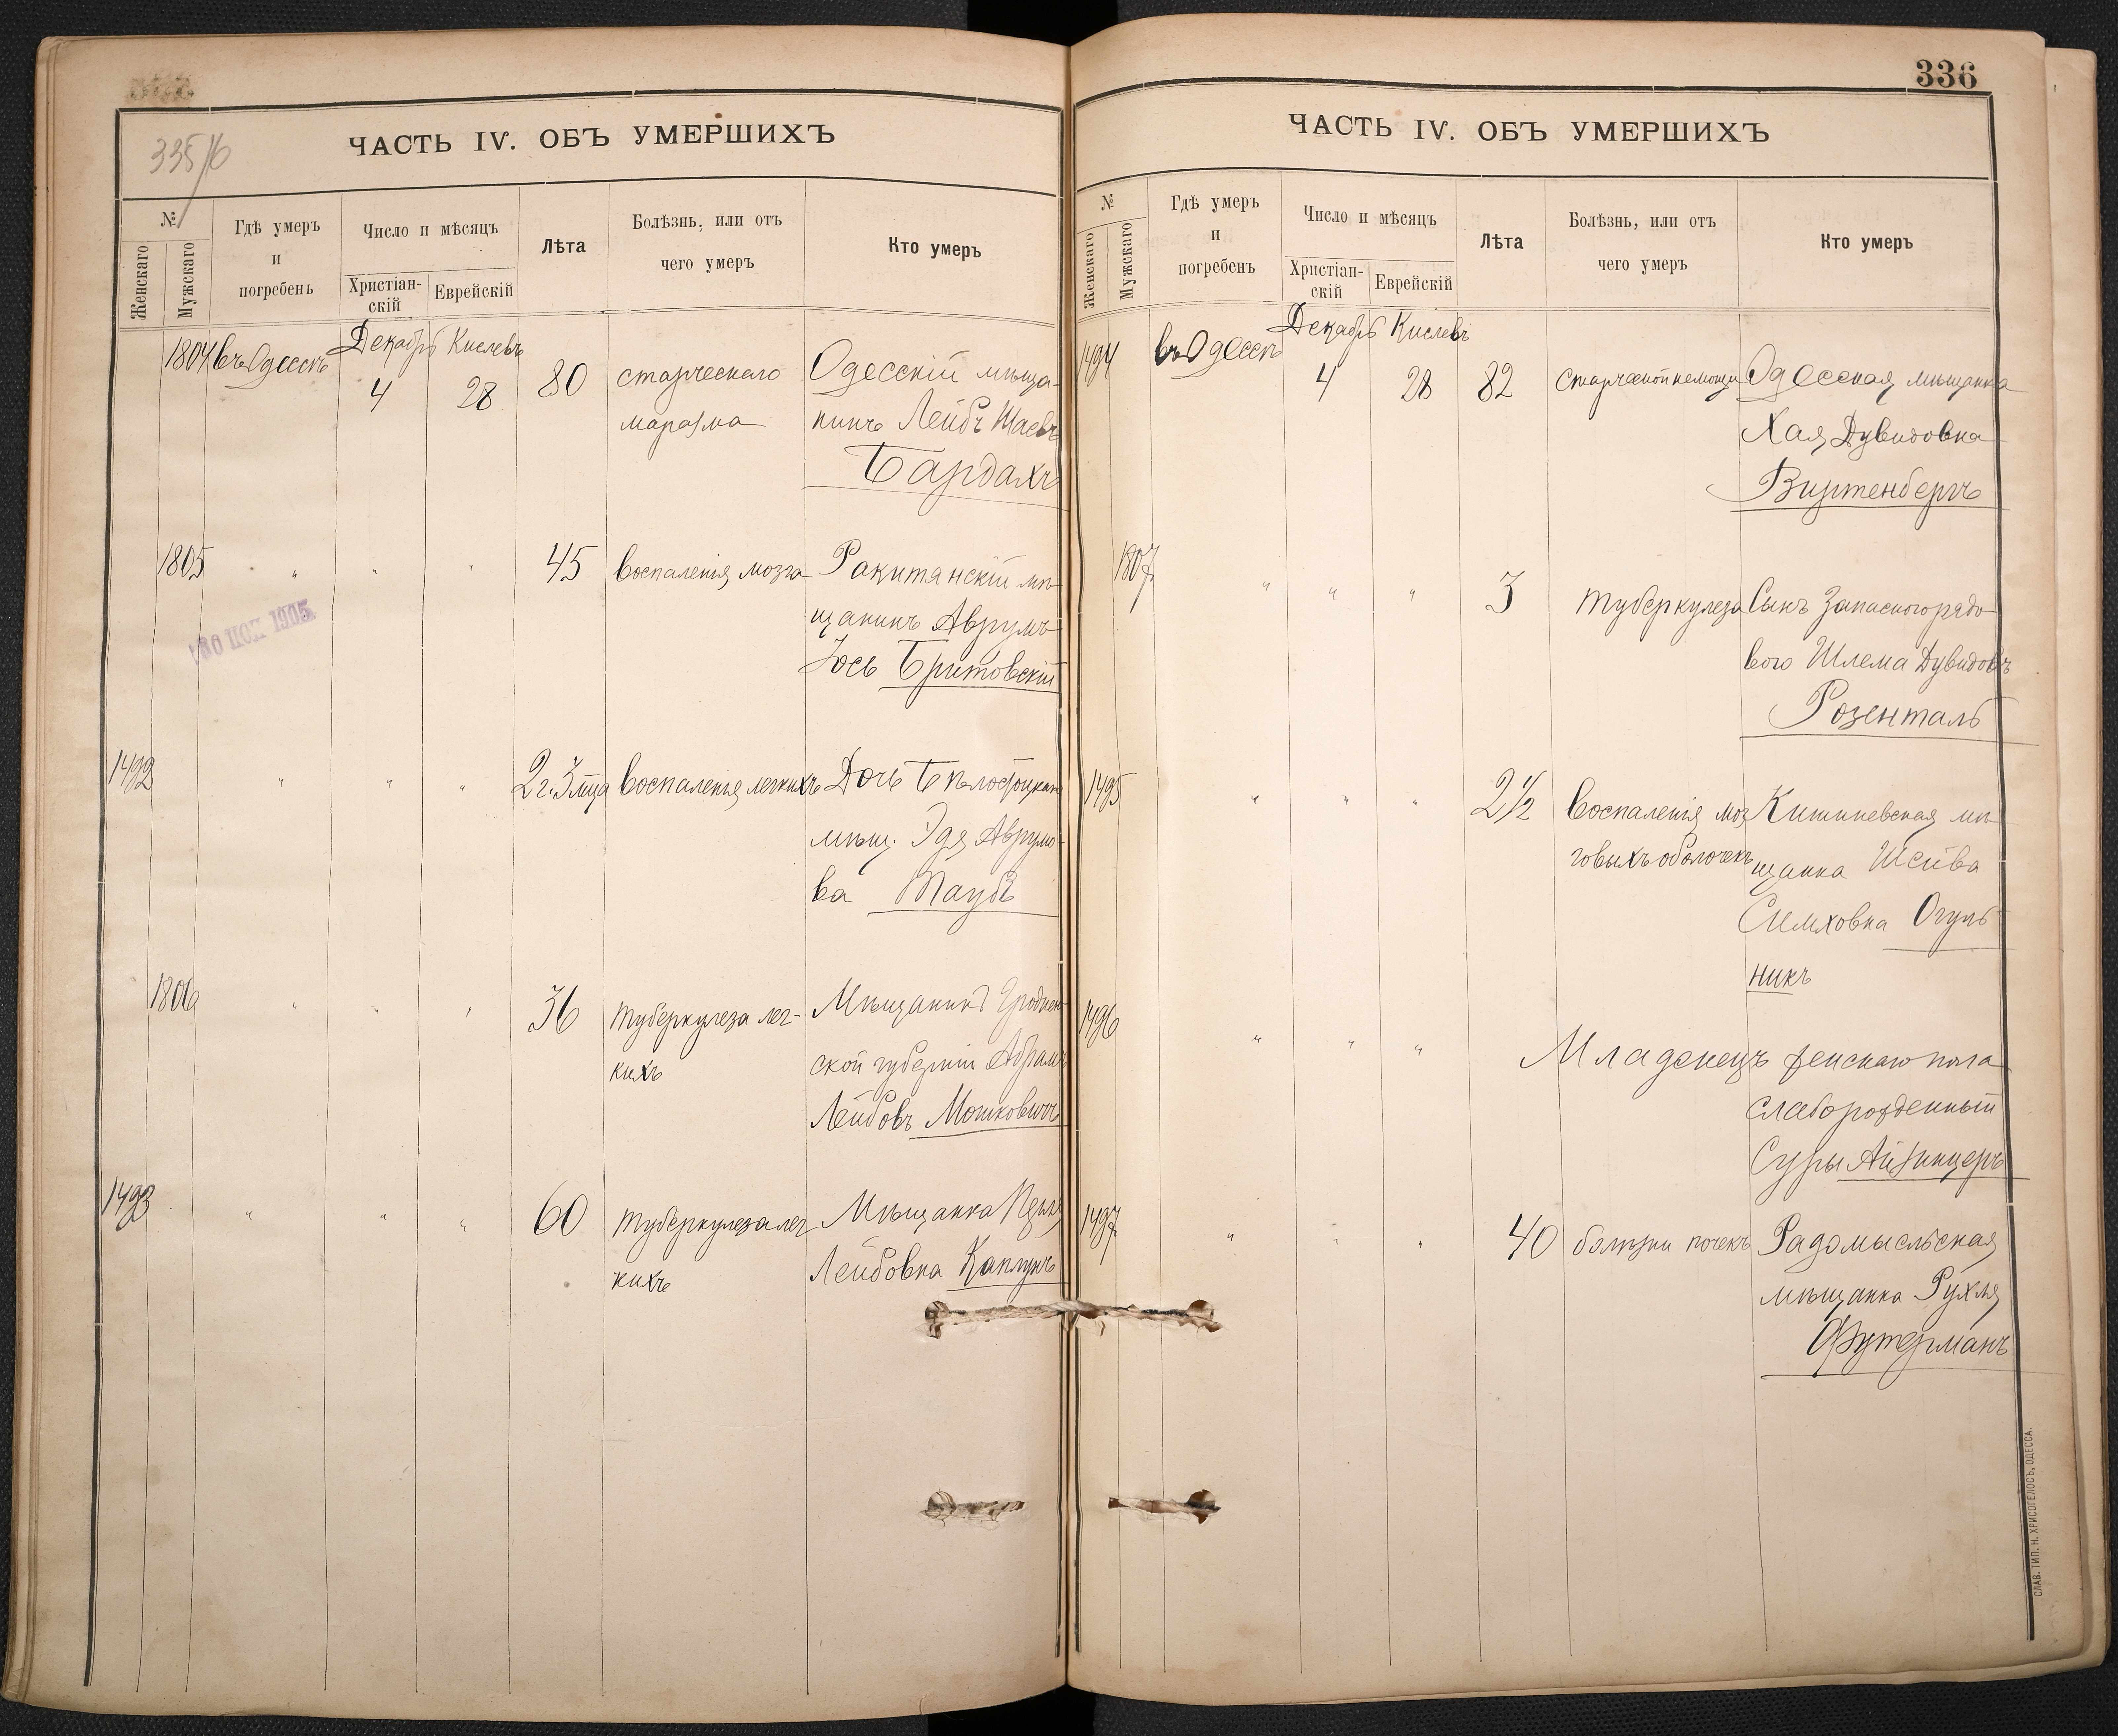 335/б
ЧАСТЬ IV. ОБЪ УМЕРШИХЪ
№
Женскаго
Мужскаго
Гдѣ умеръ
и
погребенъ
Число и мѣсяцъ
Христіан-
скій
Еврейскій
Лѣта
Болѣзнь, или отъ
чего умеръ
Кто умеръ
1804 въ Одессѣ Декабрь 4 Кислевъ 28 80 старческаго Одесскій мѣща-
маразма нинъ Лейбъ Шаевъ
Бардахъ
1805 " " " 45 воспаленія мозга Ракитянскій мѣ-
щанинъ Аврумъ
Іось Бритовскій
30 1905
1492 " " " 2 г. 3 м-ца воспаленія легкихъ Дочь Бѣлостоцкаго
мѣщ. Эдя Аврумо-
ва Таубъ
1806 " " " 36 туберкулеза лег- Мѣщанинъ Гроднен-
кихъ ской губерніи Абрамъ
Лейбовъ Мошковичъ
1493 " " " 60 туберкулеза лег Мѣщанка
кихъ Лейбовна Каплунъ
336
ЧАСТЬ IV. ОБЪ УМЕРШИХЪ
№
Женскаго
Мужскаго
Гдѣ умеръ
и
погребенъ
Число и мѣсяцъ
Христіан-
скій
Еврейскій
Лѣта
Болѣзнь, или отъ
чего умеръ
Кто умеръ
1494 въ Одессѣ Декабрь 4 Кислевъ 28 82 старческой немощи Одесская мѣщанка
Хая Дувидовна
Виртенбергъ
1807 " " " 3 туберкулеза Сынъ Запасного рядо-
вого Шлема Дувидовъ
Розенталь
1495 " " " 2½ Воспаленія моз Кишиневская мѣ-
говыхъ оболочекъ щанка Шейва
Симховна Огуль-
никъ
1496 " " " Младенецъ женскаго пола
слаборожденный
Суры Айзинцеръ
1497 " " " 40 болѣзни почекъ Радомысльская
мѣщанка Рухля
Футерманъ
СЛАВ. ТИП. Н. ХРИСОГЕЛОСЪ, ОДЕССА.